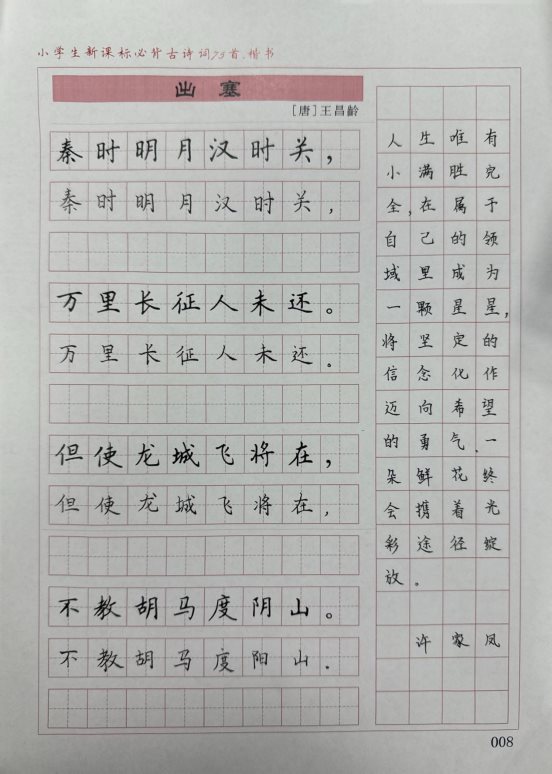 小学生新课标必背古诗词75首.楷书
出 塞
[唐]王昌龄
秦时明月汉时关，
秦时明月汉时关，
万里长征人未还。
万里长征人未还。
但使龙城飞将在，
但使龙城飞将在，
不教胡马度阴山。
不教胡马度阳山.
人生唯有
小满胜完
全,在属于
自己的领
域里成为
一颗星星,
将坚定的
信念化作
迈向希望
的勇气.一
朵鲜花终
会携着光
彩途径绽
放。
许家凤
008